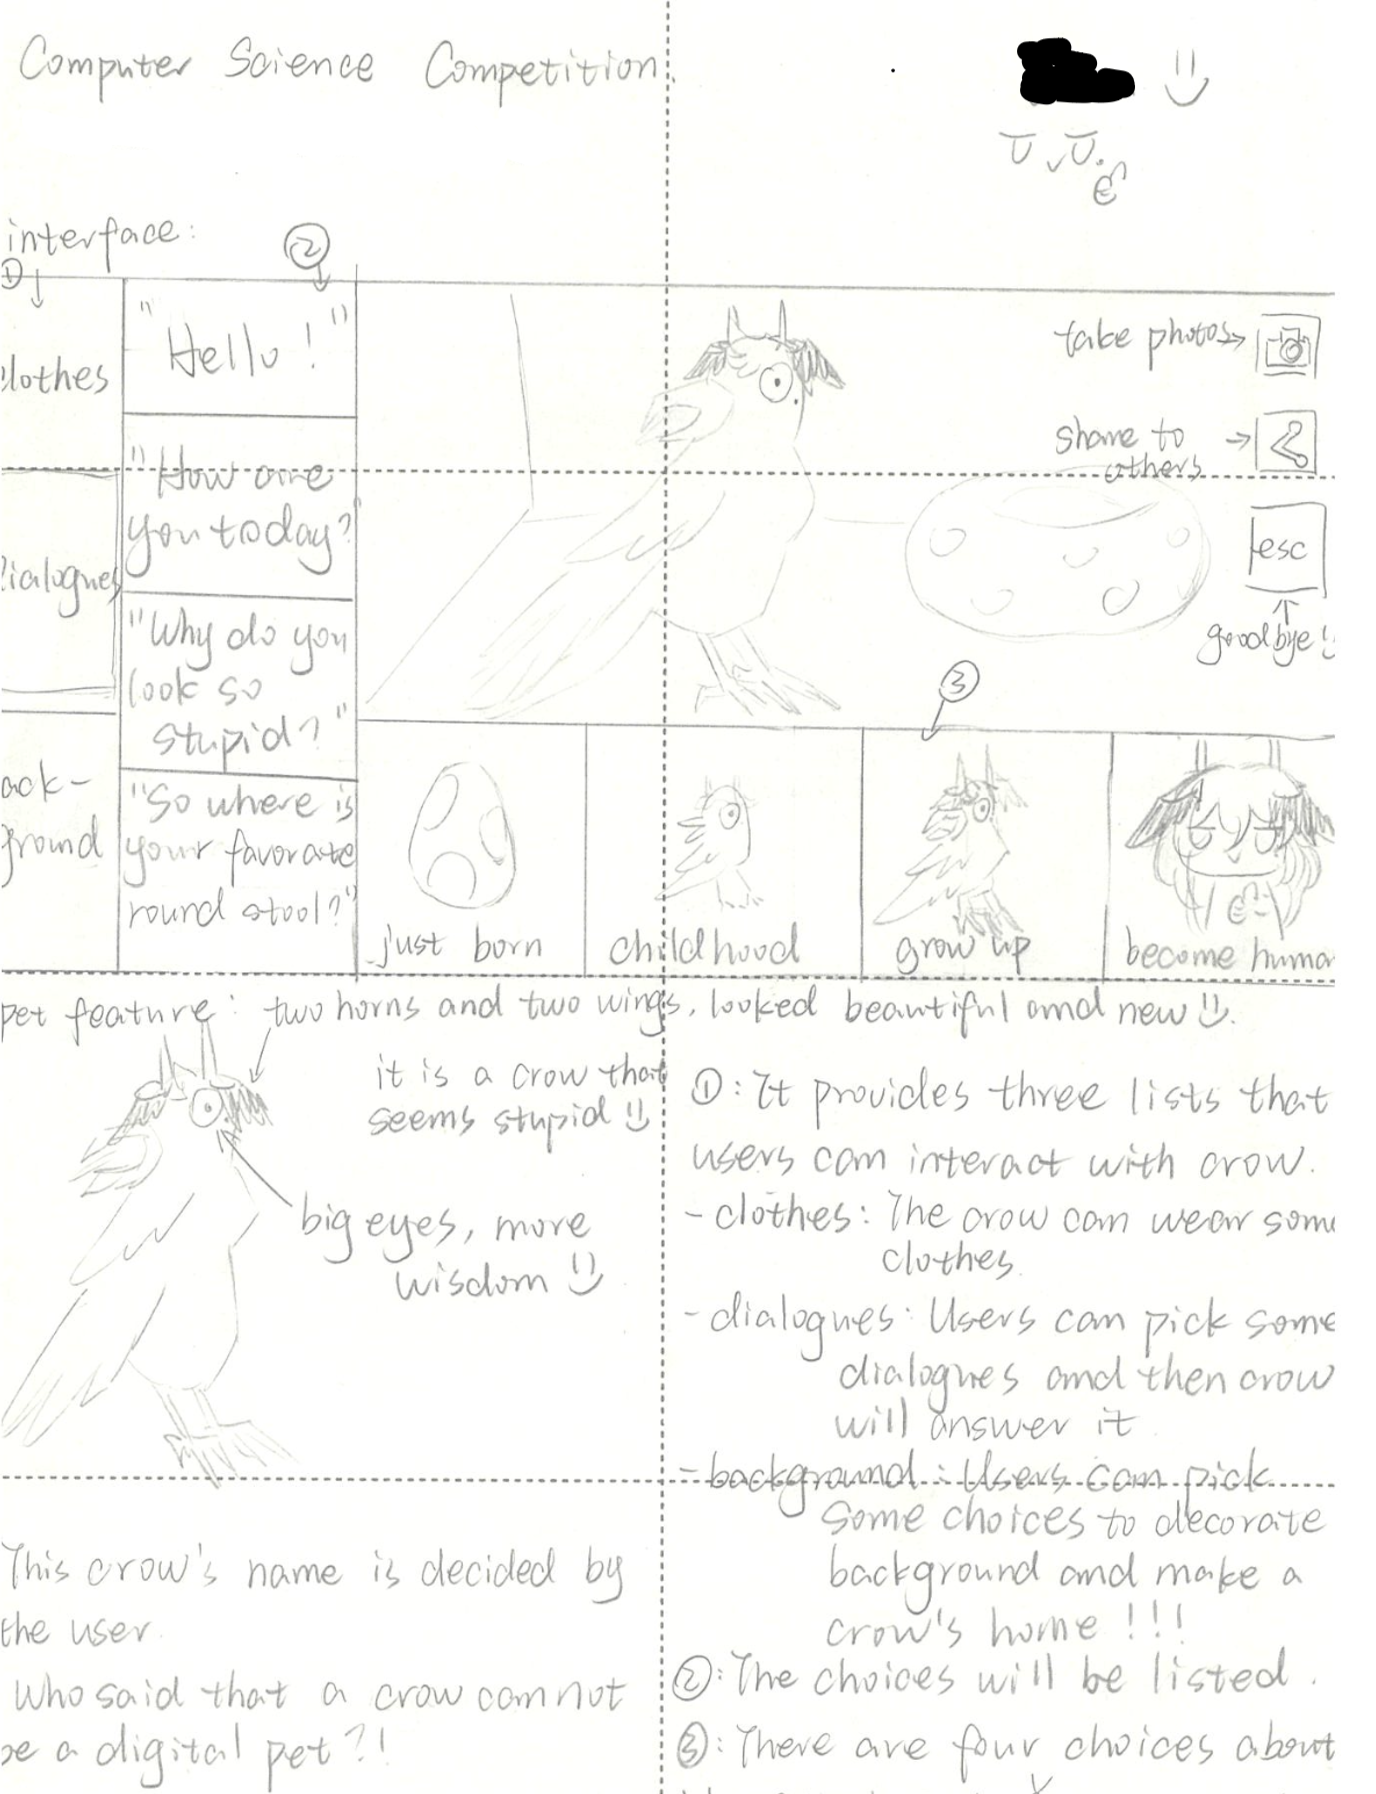 Computer Science Competition.
interface:
① ②
clothes
dialogues
ack-
ground
"Hello!"
"How are
you today?"
"Why do you
look so
stupid?"
"So where is
your favorate
round stool?"
take photos→
share to →
others
esc
goodbye!
③
just born
childhood
grow up
become human
pet feature: two horns and two wings, looked beautiful and new
it is a crow that
seems stupid
big eyes, more
wisdom
①: It provides three lists that
users can interact with crow.
- clothes: The crow can wear some
clothes.
- dialogues: Users can pick some
dialogues and then crow
will answer it
- background: Users can pick
some choices to decorate
background and make a
crow's home!!!
②: The choices will be listed.
③: There are four choices about
This crow's name is decided by
the user.
Who said that a crow can not
be a digital pet?!